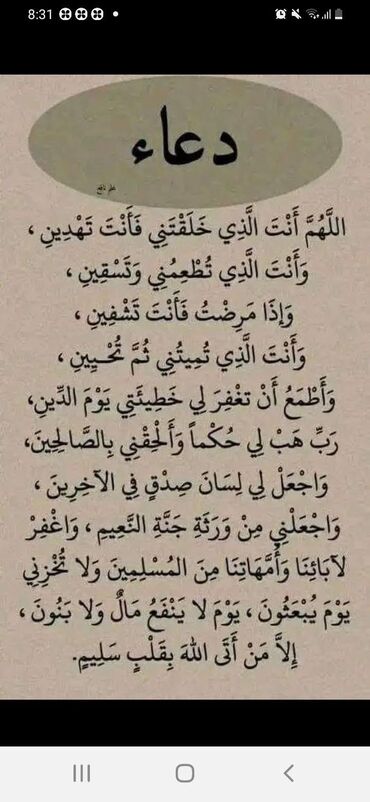 8:31
دعاء
علم نافع
اللَّهُمَّ أَنْتَ الَّذِي خَلَقْتَنِي فَأَنْتَ تَهْدِينِ ،
وَأَنْتَ الَّذِي تُطْعِمُنِي وَتَسْقِينِ ،
وَإِذَا مَرِضْتُ فَأَنْتَ تَشْفِينِ ،
وَأَنْتَ الَّذِي تُمِيتُنِي ثُمَّ تُحْيِينِ ،
وَأَطْمَعُ أَنْ تَغْفِرَ لِي خَطِيئَتِي يَوْمَ الدِّينِ،
رَبِّ هَبْ لِي حُكْماً وَأَلْحِقْنِي بِالصَّالِحِينَ،
وَاجْعَلْ لِي لِسَانَ صِدْقٍ فِي الآخِرِينَ ،
وَاجْعَلْنِي مِنْ وَرَثَةِ جَنَّةِ النَّعِيمِ ، وَاغْفِرْ
لآبَائِنَا وَأُمَّهَاتِنَا مِنَ المُسْلِمِينَ وَلا تُخْزِنِي
يَوْمَ يُبْعَثُونَ ، يَوْمَ لا يَنْفَعُ مَالٌ وَلا بَنُونَ ،
إِلاَّ مَنْ أَتَى اللهَ بِقَلْبٍ سَلِيمٍ.